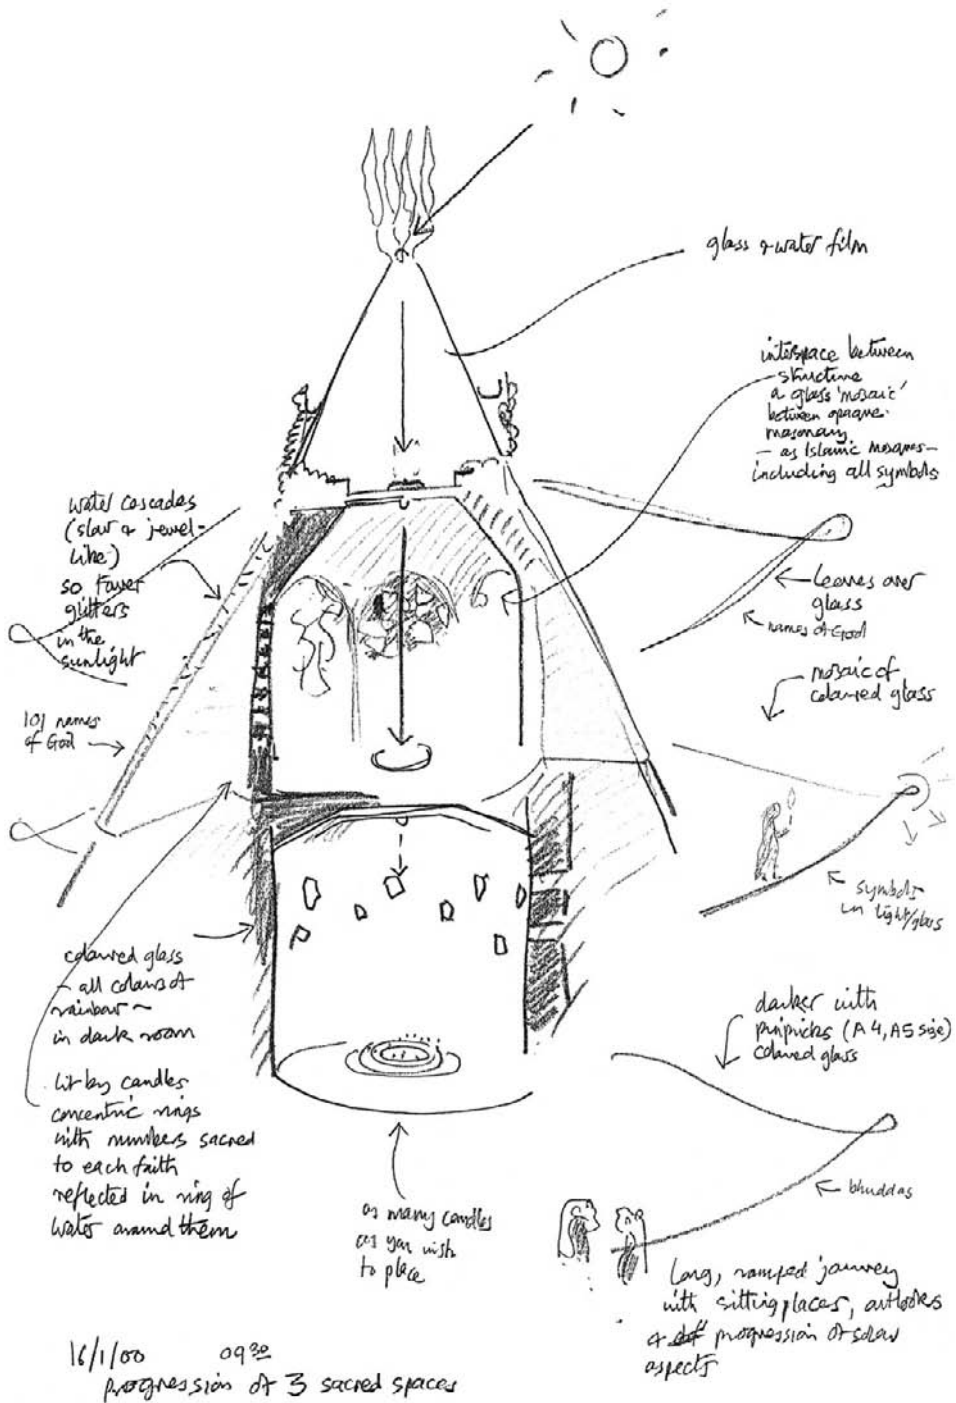 glass & water film
interspace between
structure
a glass 'mosaic'
between opaque
masonary
- as Islamic mosques -
including all symbols
water cascades
(slow & jewel-
like)
so tower
glitters
in the
sunlight
101 names
of God
leaves over
glass
names of God
mosaic of
coloured glass
symbols
in light/glass
coloured glass
- all colours of
rainbow -
in dark room
lit by candles
concentric rings
with numbers sacred
to each faith
reflected in ring of
water around them
darker with
pinpricks (A4, A5 size)
coloured glass
bhuddas
as many candles
as you wish
to place
long, ramped journey
with sitting places, outlooks
& progression of solar
aspects
16/1/00 09 30
progression of 3 sacred spaces